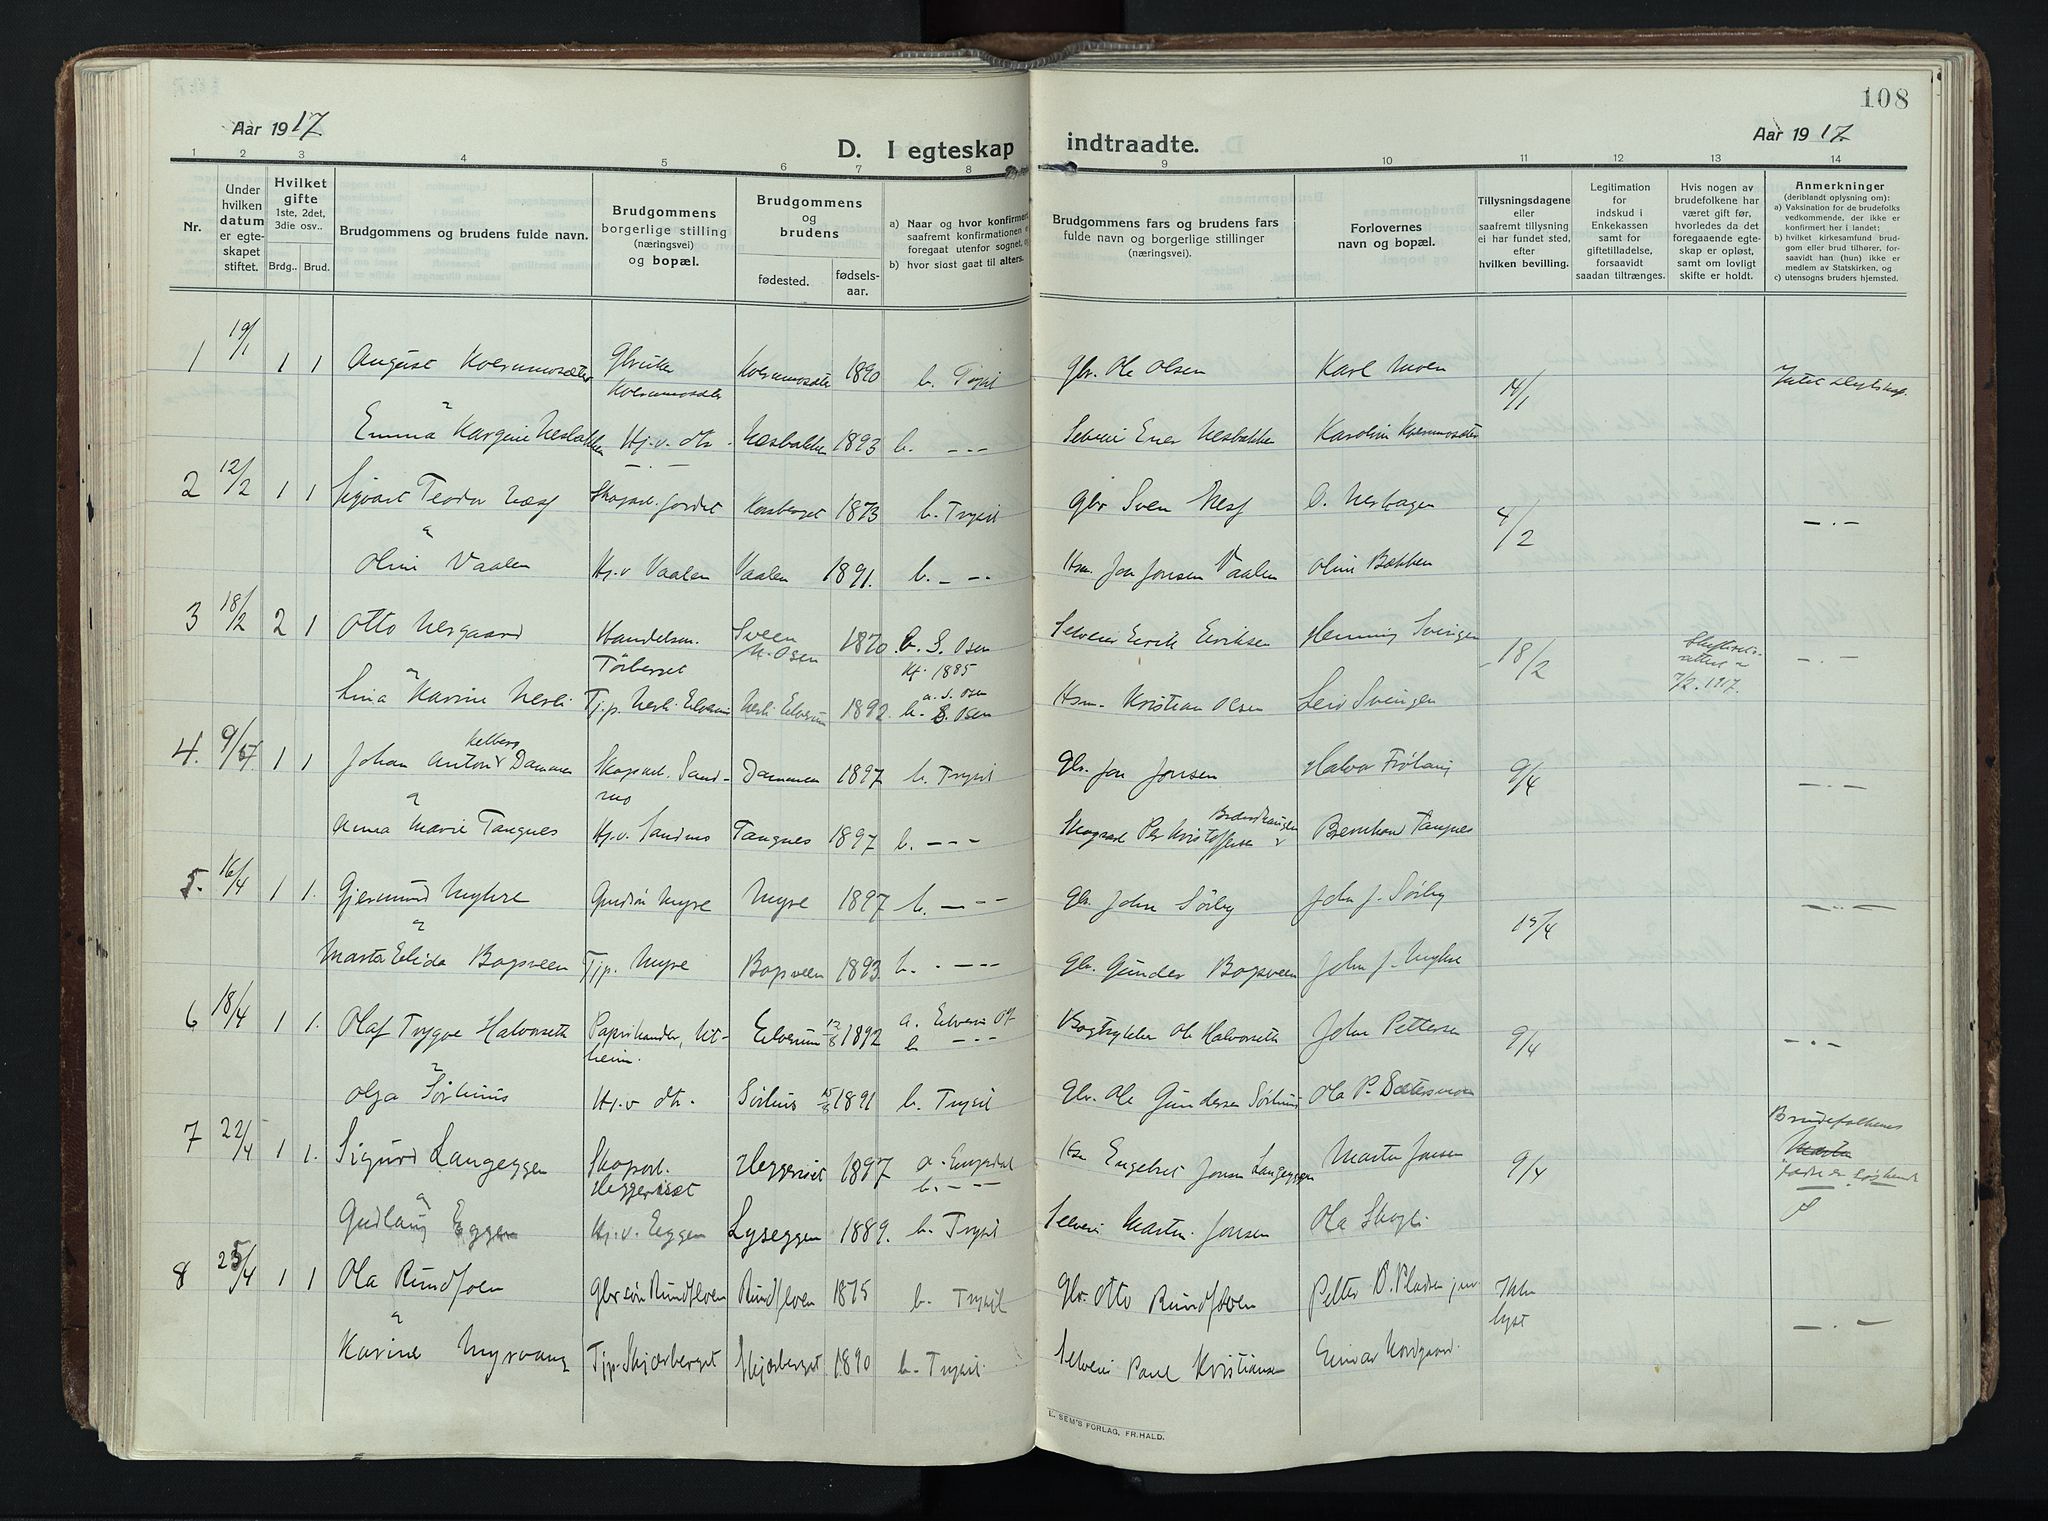 108
Aar 1917
D. I egteskap indtraadte.
Aar 1917
1 2 3 4 5 6 7 8 9 10 11 12 13 14
Nr.
Under hvilken datum er egteskapet stiftet.
Hvilket gifte 1ste, 2det, 3die osv..
Brdg.. Brud.
Brudgommens og brudens fulde navn.
Brudgommens borgerlige stilling (næringsvei) og bopæl.
Brudgommens og brudens
fødested. fødselsaar.
a) Naar og hvor konfirmert, saafremt konfirmationen er foregaat utenfor sognet, og
b) hvor sidst gaat til alters.
Brudgommens fars og brudens fars fulde navn og borgerlige stillinger (næringsvei).
Forlovernes navn og bopæl.
Tillysningsdagene eller saafremt tillysning ei har fundet sted, efter hvilken bevilling.
Legitimation for indskud i Enkekassen samt for giftetilladelse, forsaavidt saadan tiltrænges.
Hvis nogen av brudefolkene har været gift før, hvorledes da det foregaaende egteskap er opløst, samt om lovligt skifte er holdt.
Anmerkninger (deriblandt oplysning om):
a) Vaksination for de brudefolks vedkommende, der ikke er konfirmert her i landet;
b) hvilket kirkesamfund brudgom eller brud tilhører, forsaavidt han (hun) ikke er medlem av Statskirken, og
c) utensogns bruders hjemsted.
1 19/1 1 1 August Kversmosæter Gbruker Kversmosæter 1890 b. Trysil Gbr. Ole Olsen Karl Moen 14/1 Intet slegtskap.
Emma Kargine Nesbakken Hj. v. dtr. Næsbakken 1893 b. - - - Selveier Nesbakken Karoline Kversmosæter
2 12/2 1 1 Sigvart Teodor Næss Skogsarb. Jordet Korsberget 1873 b. Trysil Gbr Sven Næss O. Neshagen 4/2 - . -
Oline Vaalen Hj. v Vaalen Vaalen 1891. b. - - - Hsm. Jon Jonsen Vaalen Oline Bækken
3 18/2 2 1 Otto Nergaard Handelsm. Törberget Sveen N. Osen 1870 b. S. Osen Selveier Eirik Eriksen Henning Svingen - 18/2 7/2. 1917. - . -
Kf. 1885
Lina Karine Nerli Tj.p. Nerli Elverum Nerli Elverum 1892. a. S. Osen b. S. Osen Hsm. Kristian Olsen Leiv Svingen
4. 9/4 1 1 Johan Anton Kelberg Dammen Skogsarb. Sandmo Dammen 1897 b. Trysil Gbr. Jon Jonsen Halvor Frölang 9/4 - . -
Anna Marie Tangnes Hj. v. Sandmo Tangnes 1897 b. - - - Skogsarb Per Kristoffersen Bernhard Tangnes
5. 16/4 1 1. Gjermund Myhre Gaardsøn Myre Myre 1897 b. - - - Gbr. John Sörby John J. Sörby 15/4 - . -
Marta Elida Bogsveen Tjp. Myre Bogsveen 1893. b. - - - Gbr. Gunder Bogsveen John J. Myhre
6 18/4 1 1. Olaf Trygve Halvorseth Papirhandler, Utheim. Elverum 13/8 1892 a. Elverum b - - - Bogtrykker Ole Halvorseth John Pettersen 9/4 - . -
Olga Sörhuus Hj. v dtr. Sörhus 15/8 1891 b. Trysil Gbr. Ole Gundersen Sörhus Ola P. Sætersmoen
7 22/4 1 1. Sigurd Langeggen Skogsarb. Heggeriset Heggeriset 1897 a. Engerdal b. - - - Hsm Engebret Jonsen Langeggen Martin Jonsen 9/4 Brudefolkenes fædre er søskende
Gudlaug Eggen Hj. v. Eggen Lyseggen 1889. b. Trysil Selveier Martin Jonsen Ola Skogli
8 25/4 1 1 Ola Rundfloen Gbrsön Rundfloen Rundfloen 1875 b. Trysil Gbr. Otto Rundfloen Petter O. Pladsen jun. Ikke lyst - . -
Karine Myrvang Tjp. Skjærberget Skjærberget 1890 b. Trysil Selveier Paul Kristiansen Einar Nordgaard.
L. SEM'S FORLAG, FR.HALD.